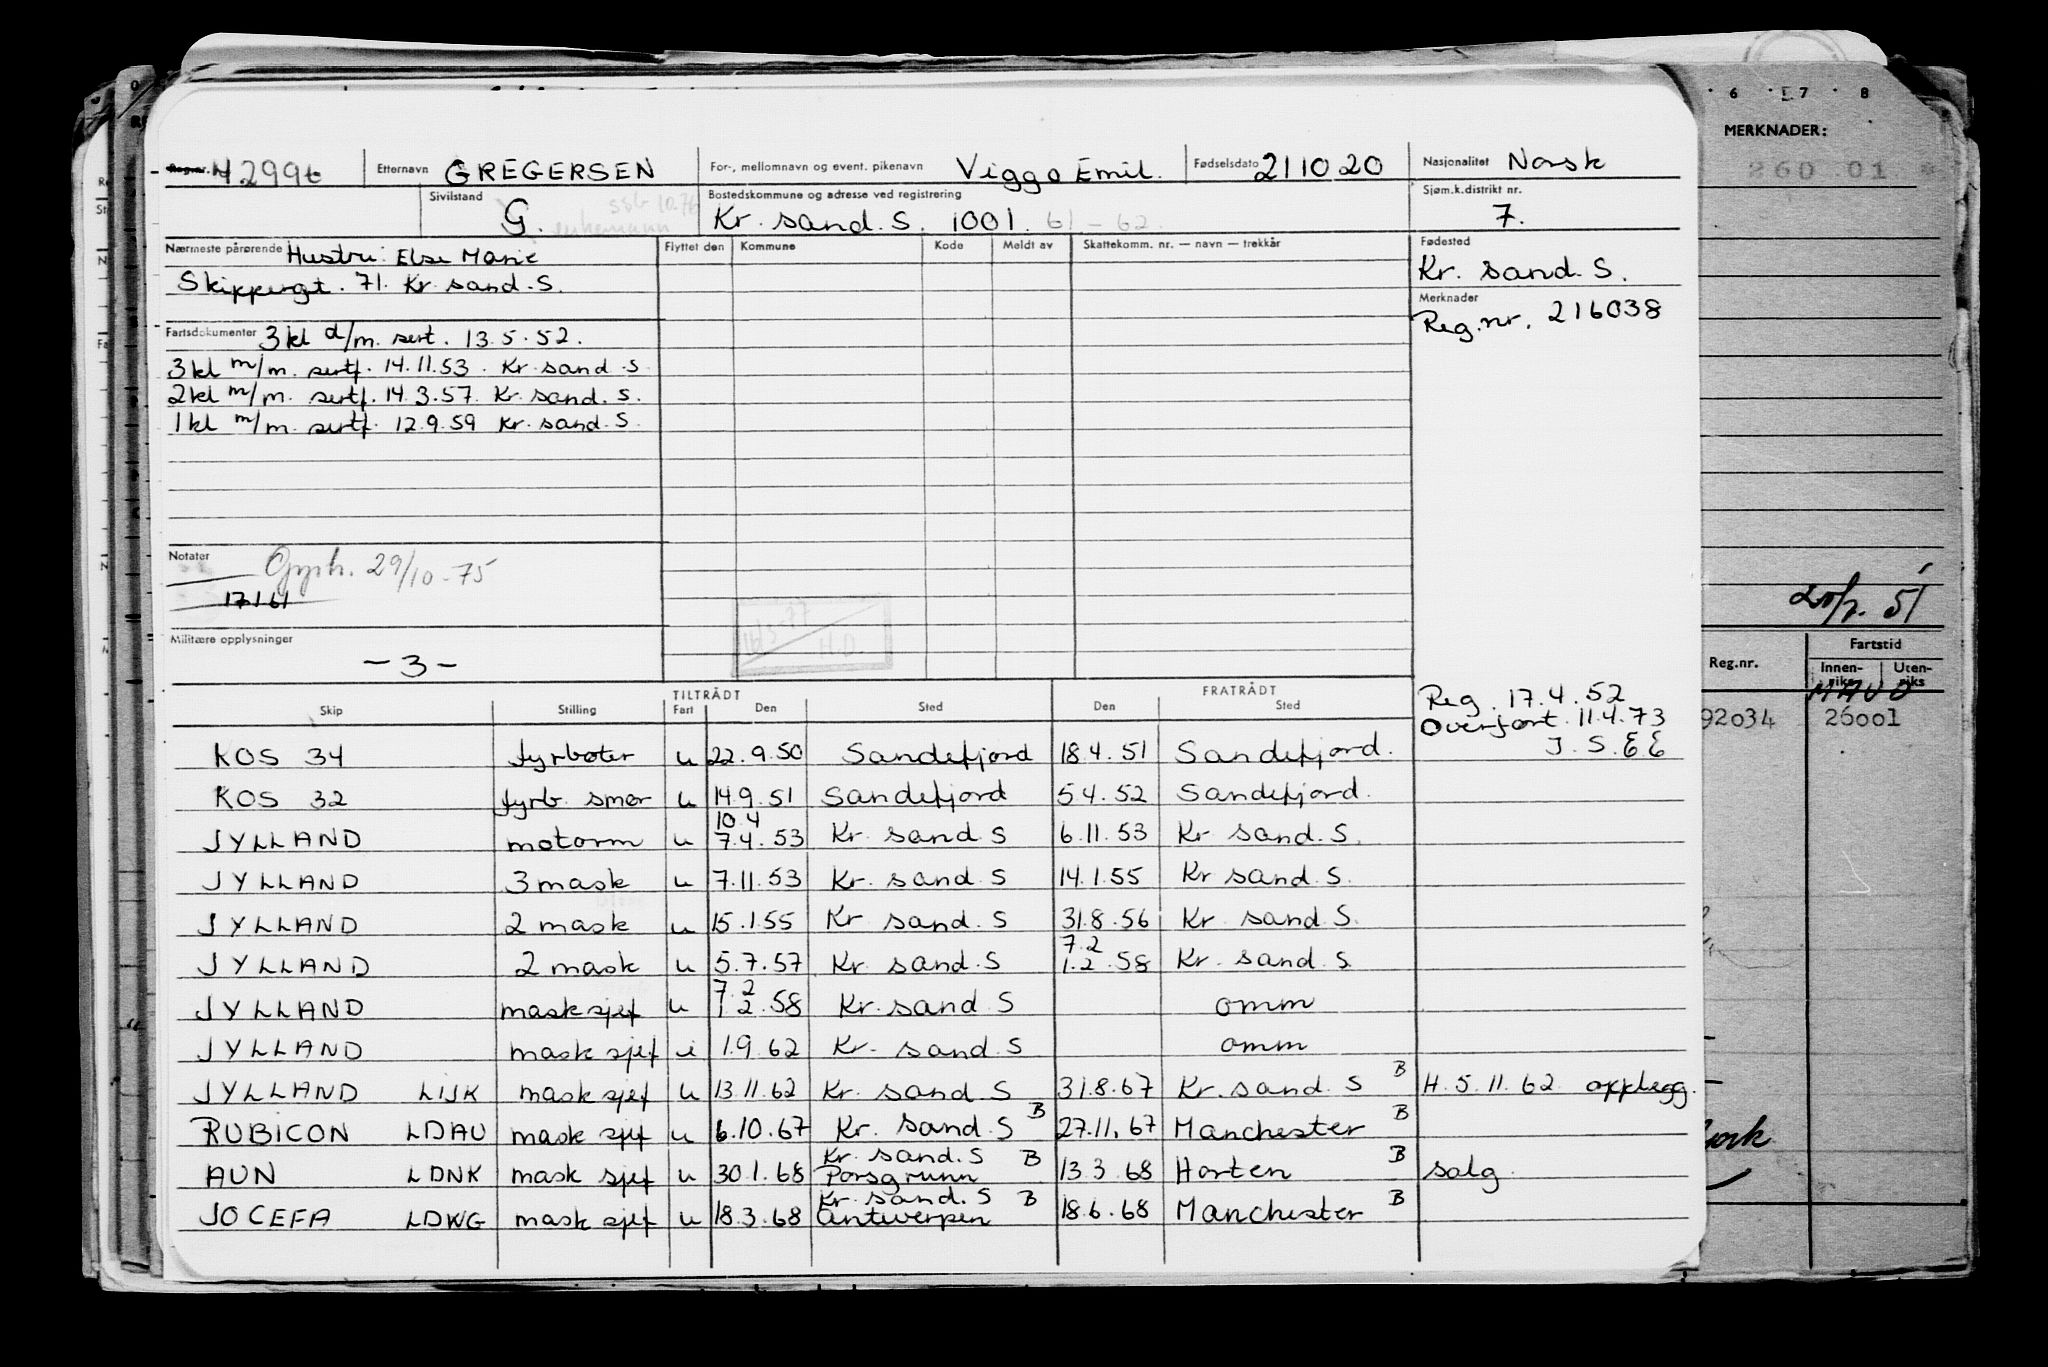 6 7 8
MERKNADER:
260 01 *
Reg.nr. Etternavn GREGERSEN For-, mellomnavn og event. pikenavn Viggo Emil. Fødselsdato 211020 Nasjonalitet Norsk
Sivilstand G. Bostedskommune og adresse ved registrering Kr. sand. S. 1001. 61-62. Sjøm.k.distrikt nr. 7.
Nærmeste pårørende Hustru: Else Marie
Skippergt. 71. Kr. sand. S.
Flyttet den Kommune Kode Meldt av Skattekomm. nr. — navn — trekkår
Fødested
Kr. sand. S.
Merknader
Reg.nr. 216038
Fartsdokumenter 3 kl d/m. sert. 13.5.52.
3 kl m/m. sertf. 14.11.53. Kr. sand. S.
2 kl m/m. sertf. 14.3.57. Kr. sand. S.
1 kl m/m. sertf. 12.9.59 Kr. sand. S.
Notater
29/10-75
17161
Militære opplysninger
-3-
Reg. 17.4.52
Overført. 11.4.73
TILTRÅDT FRATRÅDT
Skip Stilling Fart Den Sted Den Sted
KOS 34 fyrbøter u 22.9.50 Sandefjord 18.4.51 Sandefjord.
KOS 32 fyrb. smør u 14.9.51 Sandefjord 5.4.52 Sandefjord.
10.4
JYLLAND motorm u 7.4.53 Kr. sand S 6.11.53 Kr. sand. S.
JYLLAND 3 mask u 7.11.53 Kr. sand. S 14.1.55 Kr. sand. S.
JYLLAND 2 mask u 15.1.55 Kr. sand. S 31.8.56 Kr. sand. S.
7.2
JYLLAND 2 mask u 5.7.57 Kr. sand. S 1.2.58 Kr. sand. S
7.2
JYLLAND mask sjef u 1.2.58 Kr. sand. S omm
JYLLAND mask sjef i 1.9.62 Kr. sand. S omm
JYLLAND LIJK mask sjef u 13.11.62 Kr. sand. S 31.8.67 Kr. sand. S B H. 5.11.62 opplegg.
RUBICON LDAU mask sjef u 6.10.67 Kr. sand. S B 27.11.67 Manchester B
Kr. sand. S B
AUN LDNK mask sjef u 30.1.68 Porsgrunn 13.3.68 Horten B salg.
Kr. sand. S B
JOCEFA LDWG mask sjef u 18.3.68 Antwerpen 18.6.68 Manchester B
51
Reg.nr. Fartstid
Innen-riks Uten-riks
92034 26001